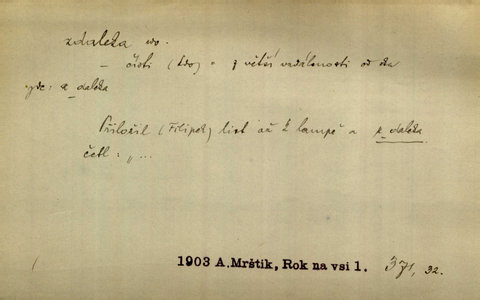 zdaleka adv.
– čísti (kdo) = z větší vzdálenosti od oka
zde: z daleka
Přiložil (Filípek) list až k lampě a z daleka
četl: „ ...
1903 A. Mrštík, Rok na vsi 1. 371, 32.